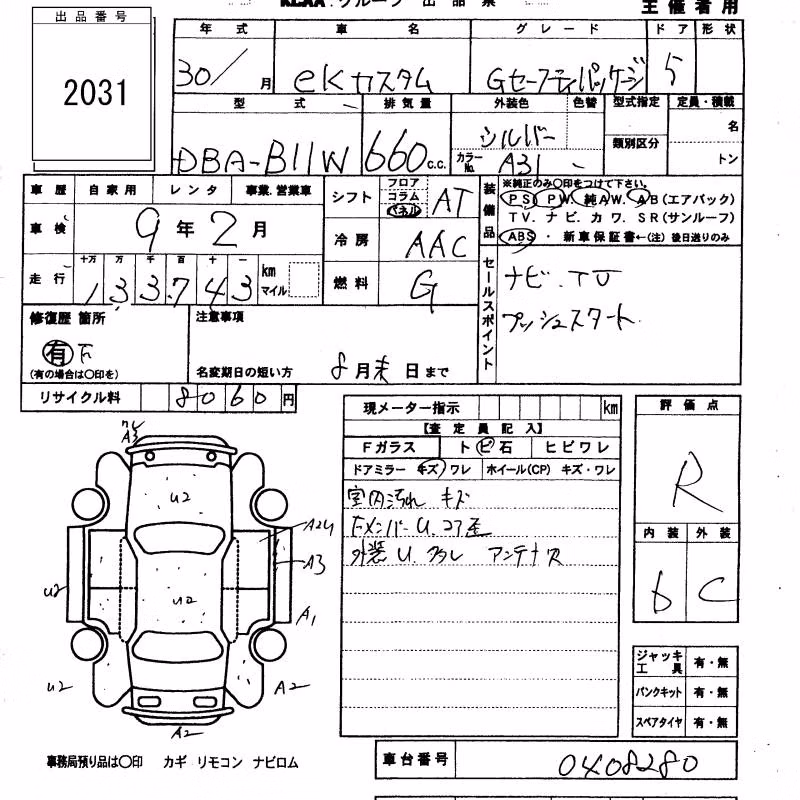 KCAA.グループ 出品票
主催者用
出品番号
2031
年式 車名 グレード ドア 形状
30/ 月 eKカスタム Gセーフティパッケージ 5
型式 排気量 外装色 色替 型式指定 定員・積載
DBA-B11W 660 c.c. シルバー カラーNo. A31 類別区分 名 トン
車歴 自家用 レンタ 事業.営業車
車検 9年2月
走行 十万 万 千 百 十 一 km マイル
133,743
シフト フロア コラム パネル AT
冷房 AAC
燃料 G
装備品 ※純正のみ〇印をつけて下さい。
PS. PW. 純AW. AB(エアバック)
TV. ナビ. カワ. SR(サンルーフ)
ABS ・ 新車保証書←(注)後日送りのみ
セールスポイント
ナビ.TV
プッシュスタート
修復歴 箇所
有 F
(有の場合は〇印を)
注意事項
名変期日の短い方 8月末日まで
リサイクル料 8060円
現メーター指示 km
【査定員記入】
Fガラス ト ビ 石 ヒビワレ
ドアミラー キズ/ワレ ホイール(CP) キズ・ワレ
室内汚れ キズ
外装 U.多し アンテナ欠
評価点
R
内装 外装
6 C
A3
U2
U2
A2U
A3
U2
A1
U2
A2
A2
ジャッキ工具 有・無
パンクキット 有・無
スペアタイヤ 有・無
事務局預り品は〇印 カギ リモコン ナビロム
車台番号 0408280